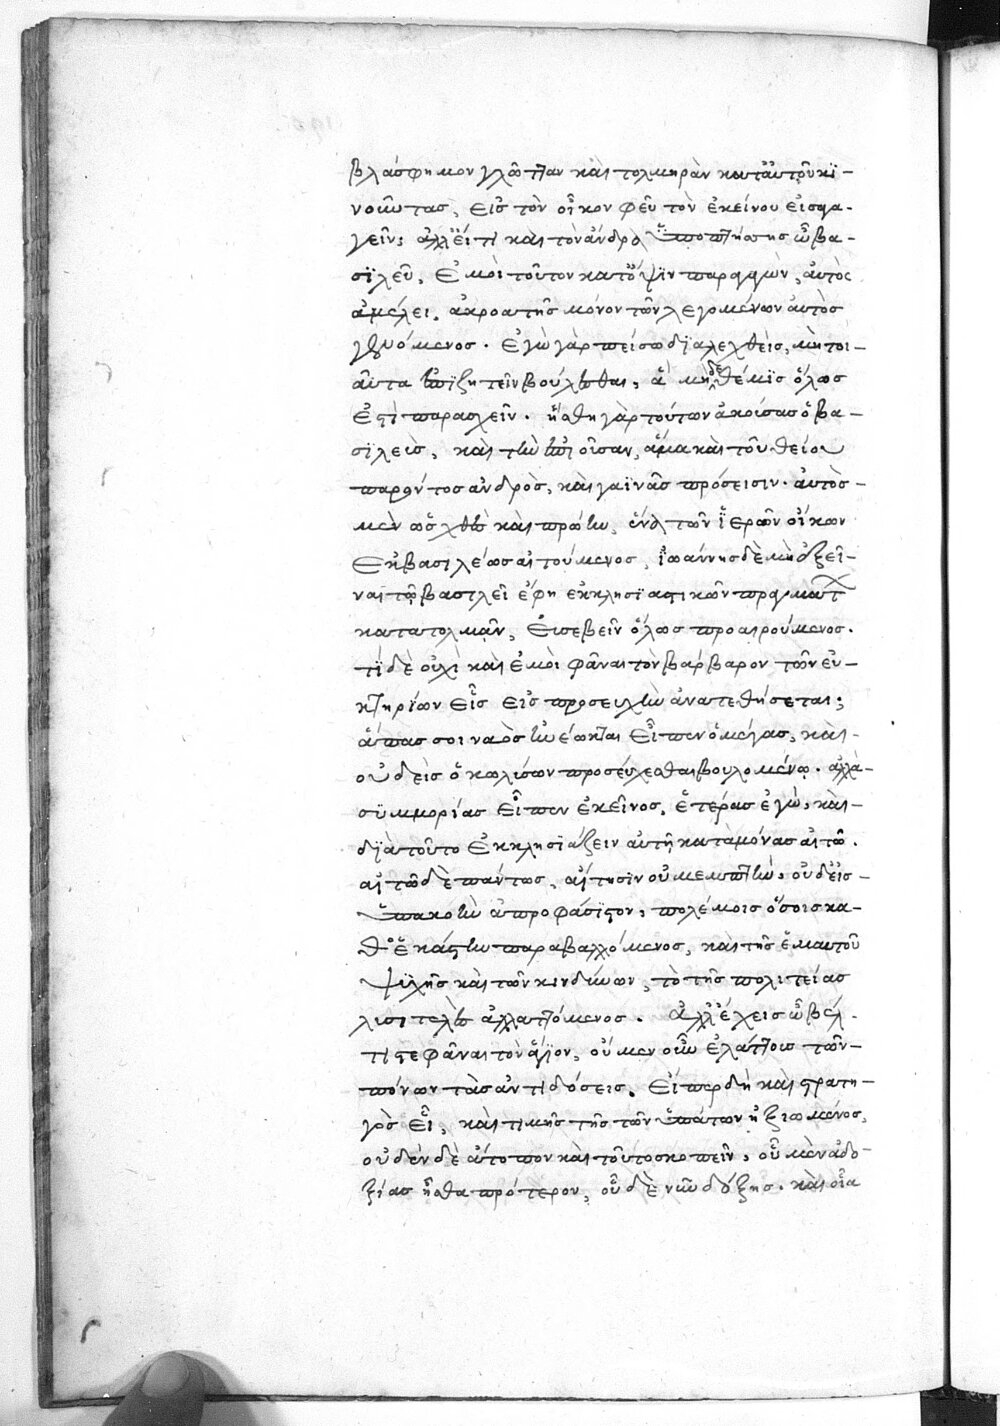 βλάσφημον γλῶτταν καὶ τολμηρὰν κατ' αὐτοῦ κι-
νοῦντας, εἰς τὸν οἶκον φεῦ τὸν ἐκείνου εἰσαγα-
γεῖν; ἀλλ' εἴ τι καὶ τὸν ἄνδρα ὑποπτήσσης ὦ βα-
σιλεῦ, ἐμοὶ τοῦτον κατ' ὄψιν παραγαγὼν, αὐτὸς
ἀμέλει. ἀκροατὴς μόνον τῶν λεγομένων αὐτὸς
γενόμενος. ἐγὼ γὰρ πείσω διαλεχθεὶς, μὴ τοι-
αῦτα ἐπιζητεῖν βούλεσθαι, ἃ μηδὲ θέμις ὅλως
ἐστὶ παρασχεῖν. ἥσθη γὰρ τούτων ἀκούσας ὁ βα-
σιλεὺς, καὶ τὴν ἐπιοῦσαν, ἅμα καὶ τοῦ θείου
παρόντος ἀνδρὸς, καὶ γαϊνᾶς πρόσεισιν. αὐτὸς
μὲν ὡς χθὲς καὶ πρώην, ἕνα τῶν ἱερῶν οἴκων
ἐκ βασιλέως αἰτούμενος, ἰωάννης δὲ μὴ ἐξεῖ-
ναι τῷ βασιλεῖ ἔφη ἐκκλησιαστικῶν πραγμάτων
κατατολμᾶν, εὐσεβεῖν ὅλως προαιρούμενος.
τί δὲ οὐχὶ καὶ ἐμοὶ φᾶναι τὸν βάρβαρον τῶν εὐ-
κτηρίων εἷς εἰς προσευχὴν ἀνατεθήσεται;
ἅπας σοι ναὸς ἠνέωκται εἶπεν ὁ μέγας, καὶ
οὐδεὶς ὁ κωλύσων προσεύχεσθαι βουλομένῳ. ἀλλὰ
συμμορίας εἶπεν ἐκεῖνος, ἑτέρας ἐγὼ, καὶ
διὰ τοῦτο ἐκκλησιάζειν αὐτῇ καταμόνας αἰτῶ.
αἰτῶ δὲ πάντως, αἴτησιν οὐ μεμπτὴν, οὐδ' εἰς
ὑπακοὴν ἀπροφάσιστον, πολέμοις ὅσοις κα-
θ' ἑκάστην παραβαλλόμενος, καὶ τῆς ἐμαυτοῦ
ψυχῆς καὶ τῶν κινδύνων, τὸ τῆς πολιτείας
λυσιτελὲς ἀλλαττόμενος. ἀλλ' ἔχεις ὦ βέλ-
τιστε φᾶναι τὸν ἅγιον, οὐ μενοῦν ἐλάττους τῶν
πόνων τὰς ἀντιδόσεις. εἴπερ δὴ καὶ στρατη-
γὸς εἶ, καὶ τιμῆς τῆς τῶν ὑπάτων ἠξιωμένος,
οὐδὲν δὲ ἄτοπον καὶ τοῦτο σκοπεῖν, οὗ μὲν ἀδο-
ξίας ἦσθα πρότερον, οὗ δὲ νῦν δόξης. καὶ οἷα